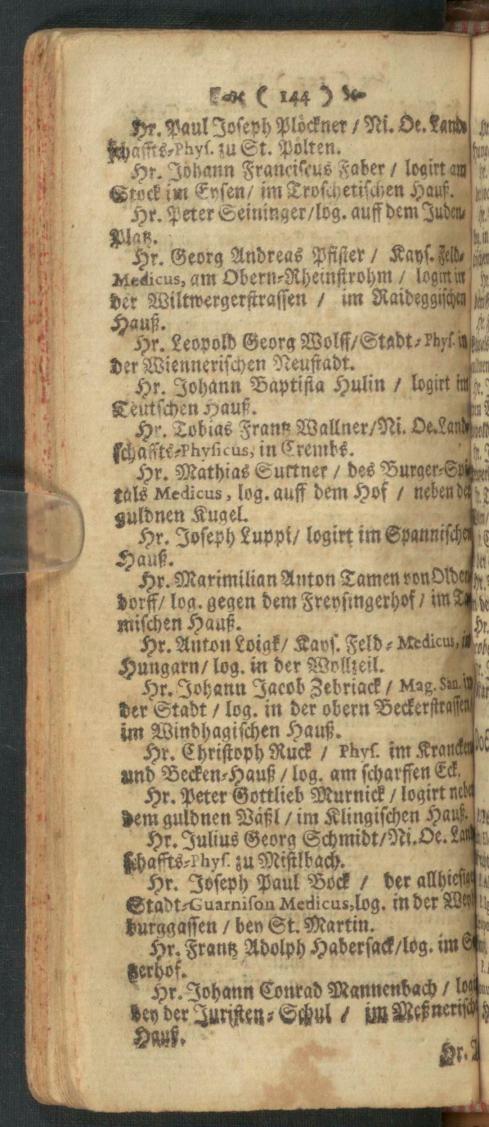 ( 144 )
Hr. Paul Joseph Plöckner / Ni. Oe. Land-
schaffts-Phys. zu St. Pölten.
Hr. Johann Franciscus Faber / logirt am
Stock im Eysen / im Troschetischen Hauß.
Hr. Peter Seininger / log. auff dem Juden-
Platz.
Hr. Georg Andreas Pfister / Kays. Feld-
Medicus, am Obern-Rheinstrohm / logirt in
der Wiltwergerstrassen / im Raideggischen
Hauß.
Hr. Leopold Georg Wolff / Stadt-Phys. in
der Wiennerischen Neustadt.
Hr. Johann Baptista Hulin / logirt im
Teutschen Hauß.
Hr. Tobias Frantz Wallner / Ni. Oe. Land-
schaffts-Physicus, in Crembs.
Hr. Mathias Suttner / des Burger-Spi-
tals Medicus, log. auff dem Hof / neben der
guldnen Kugel.
Hr. Joseph Luppi / logirt im Spannischen
Hauß.
Hr. Maximilian Anton Tamen von Olden
dorff / log. gegen dem Freysingerhof / im
mischen Hauß.
Hr. Anton Loigk / Kays. Feld-Medicus, in
Hungarn / log. in der Wollzeil.
Hr. Johann Jacob Zebriack / Mag. San. in
der Stadt / log. in der obern Beckerstrassen
im Windhagischen Hauß.
Hr. Christoph Ruck / Phys. im Krancken
und Becken-Hauß / log. am scharffen Eck.
Hr. Peter Gottlieb Murnick / logirt nebe
dem guldnen Väßl / im Klingischen Hauß.
Hr. Julius Georg Schmidt / Ni. Oe. Land
schaffts-Phys. zu Mistlbach.
Hr. Joseph Paul Bock / der allhiesige
Stadt-Guarnison Medicus, log. in der Wey
burggassen / bey St. Martin.
Hr. Frantz Adolph Habersack / log. im
tzerhof.
Hr. Johann Conrad Mannenbach / log
bey der Juristen-Schul / im Meßnerisch
Hauß.
Hr.